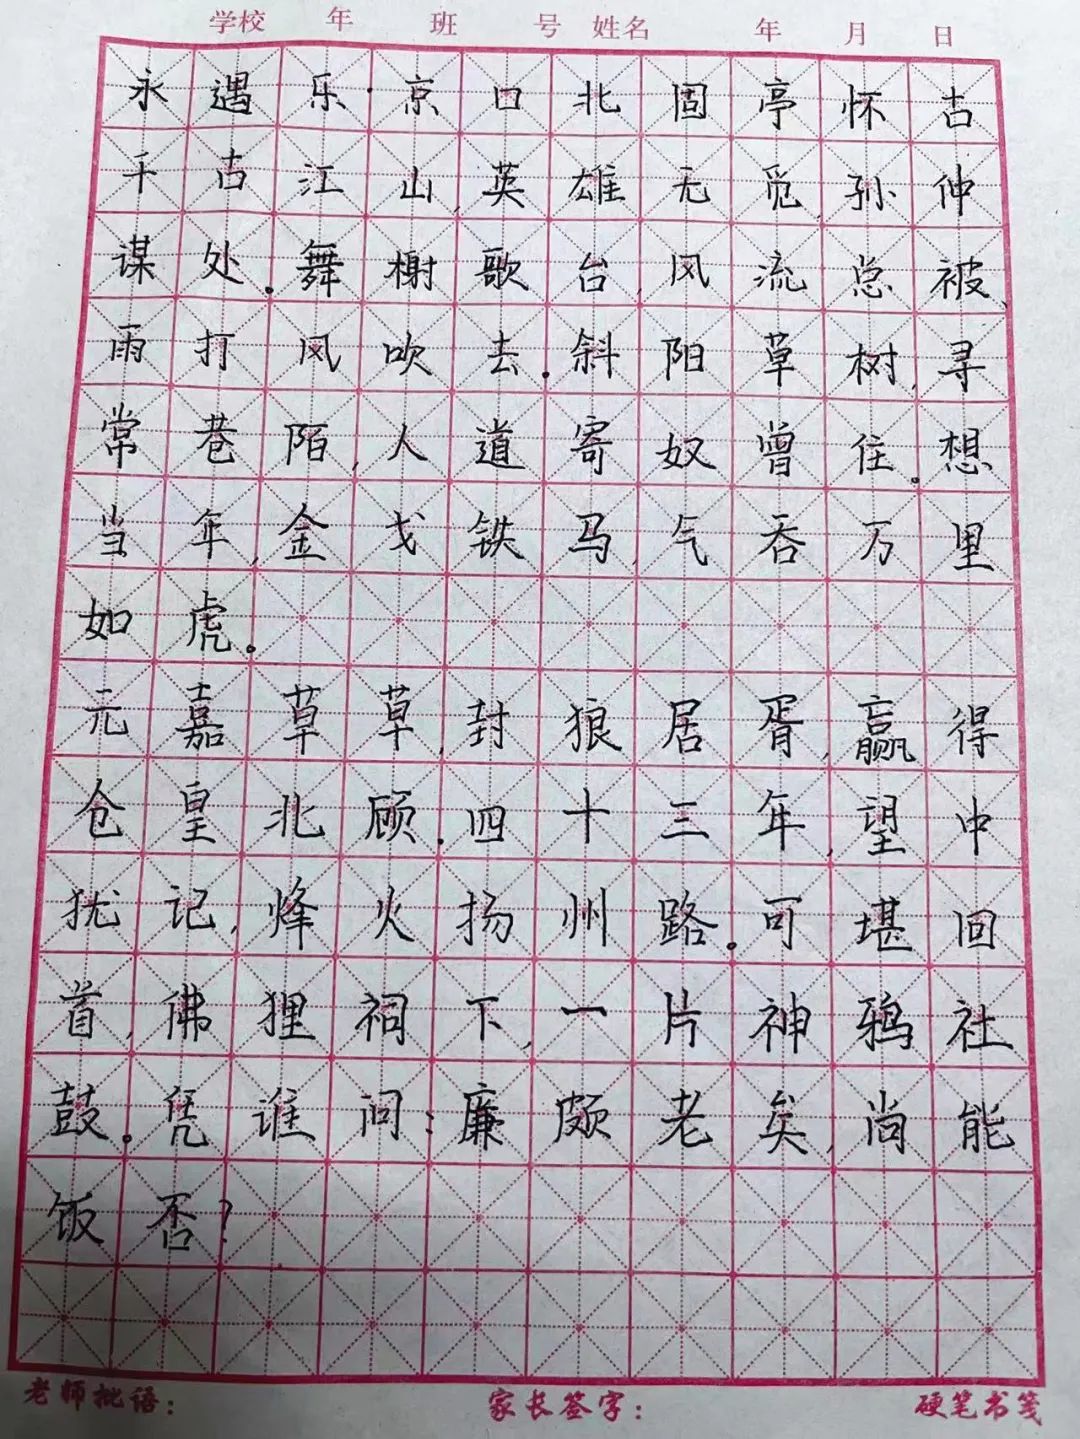 学校 年 班 号 姓名 年 月 日
永遇乐·京口北固亭怀古
千古江山,英雄无觅,孙仲
谋处。舞榭歌台,风流总被、
雨打风吹去。斜阳草树,寻
常巷陌,人道寄奴曾住。想
当年,金戈铁马,气吞万里
如虎。
元嘉草草,封狼居胥,赢得
仓皇北顾。四十三年,望中
犹记,烽火扬州路。可堪回
首,佛狸祠下,一片神鸦社
鼓。凭谁问:廉颇老矣,尚能
饭否?
老师批语: 家长签字: 硬笔书笺